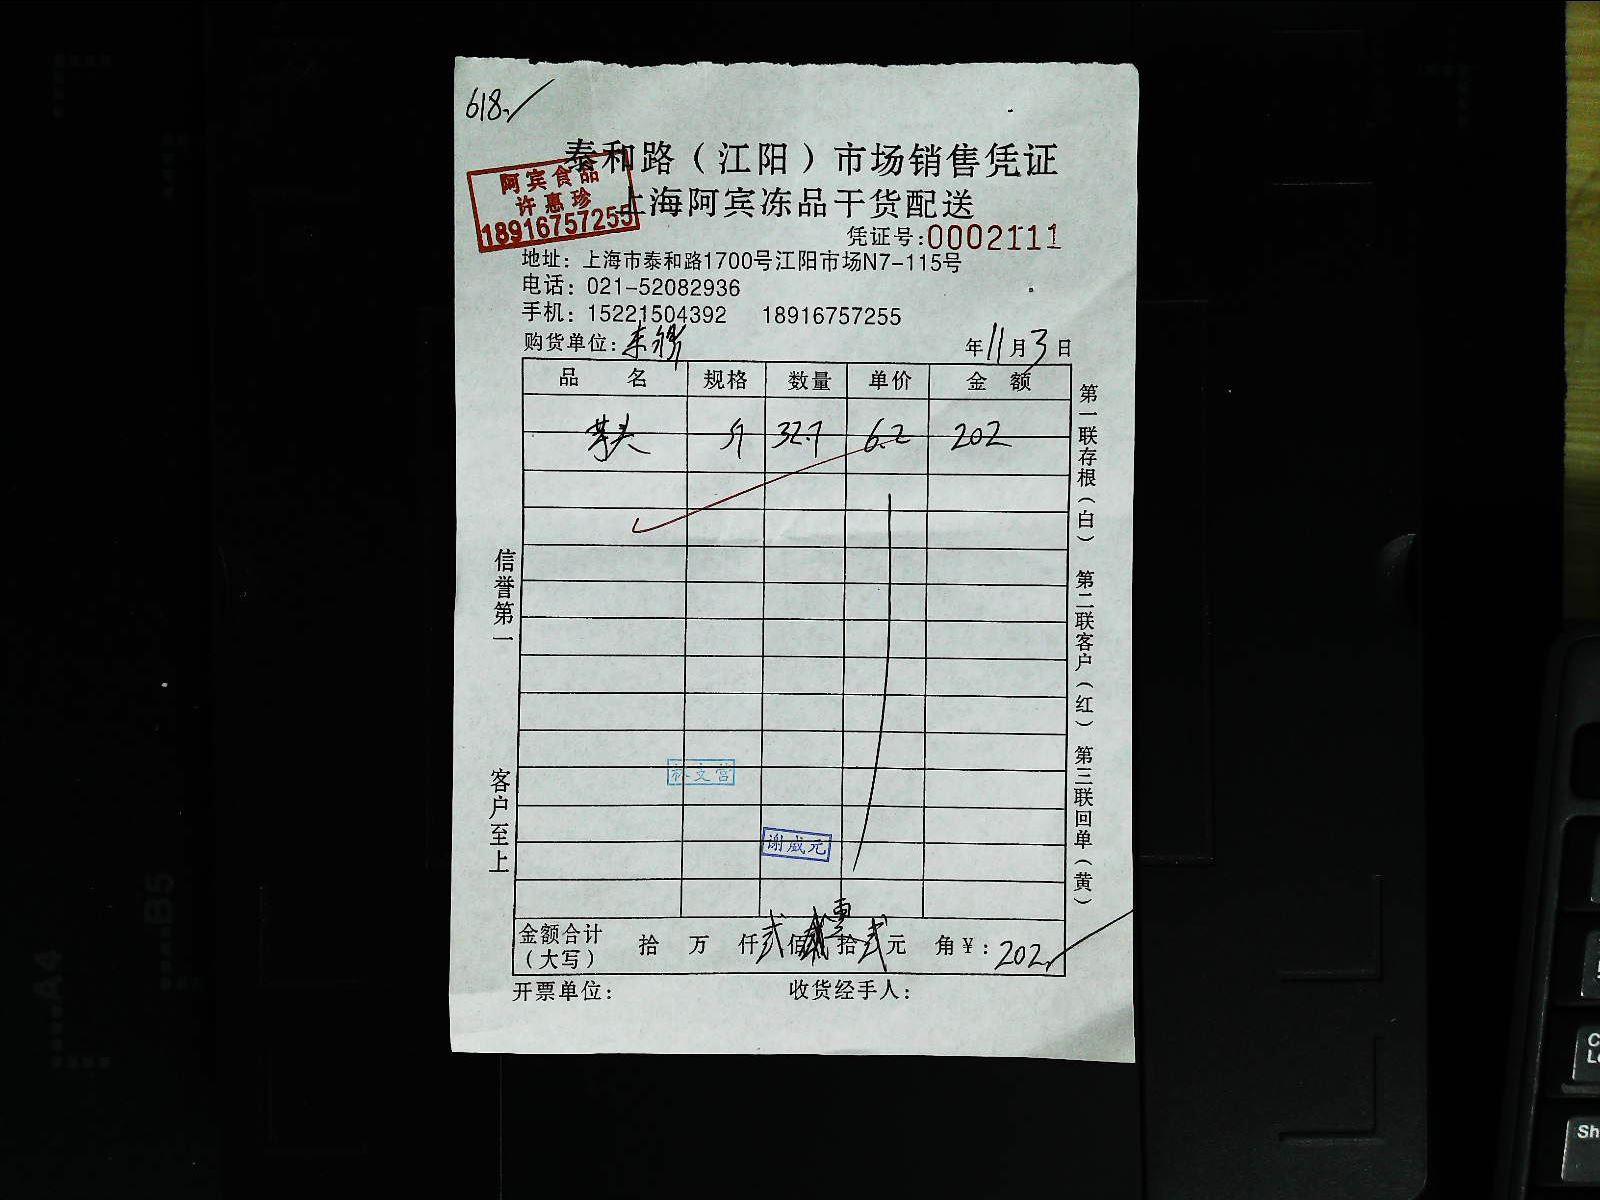 618
泰和路（江阳）市场销售凭证
阿宾食品
许惠珍
18916757255
上海阿宾冻品干货配送
凭证号:0002111
地址：上海市泰和路1700号江阳市场N7-115号
电话：021-52082936
手机：15221504392 18916757255
购货单位：
年11月3日
品名 规格 数量 单价 金额
芋头 斤 32.7 6.2 202
第一联存根（白） 第二联客户（红） 第三联回单（黄）
信誉第一
客户至上
林文营
谢成元
金额合计（大写） 拾 万 仟 贰 佰 零 拾 贰 元 角 ¥：202
开票单位： 收货经手人：